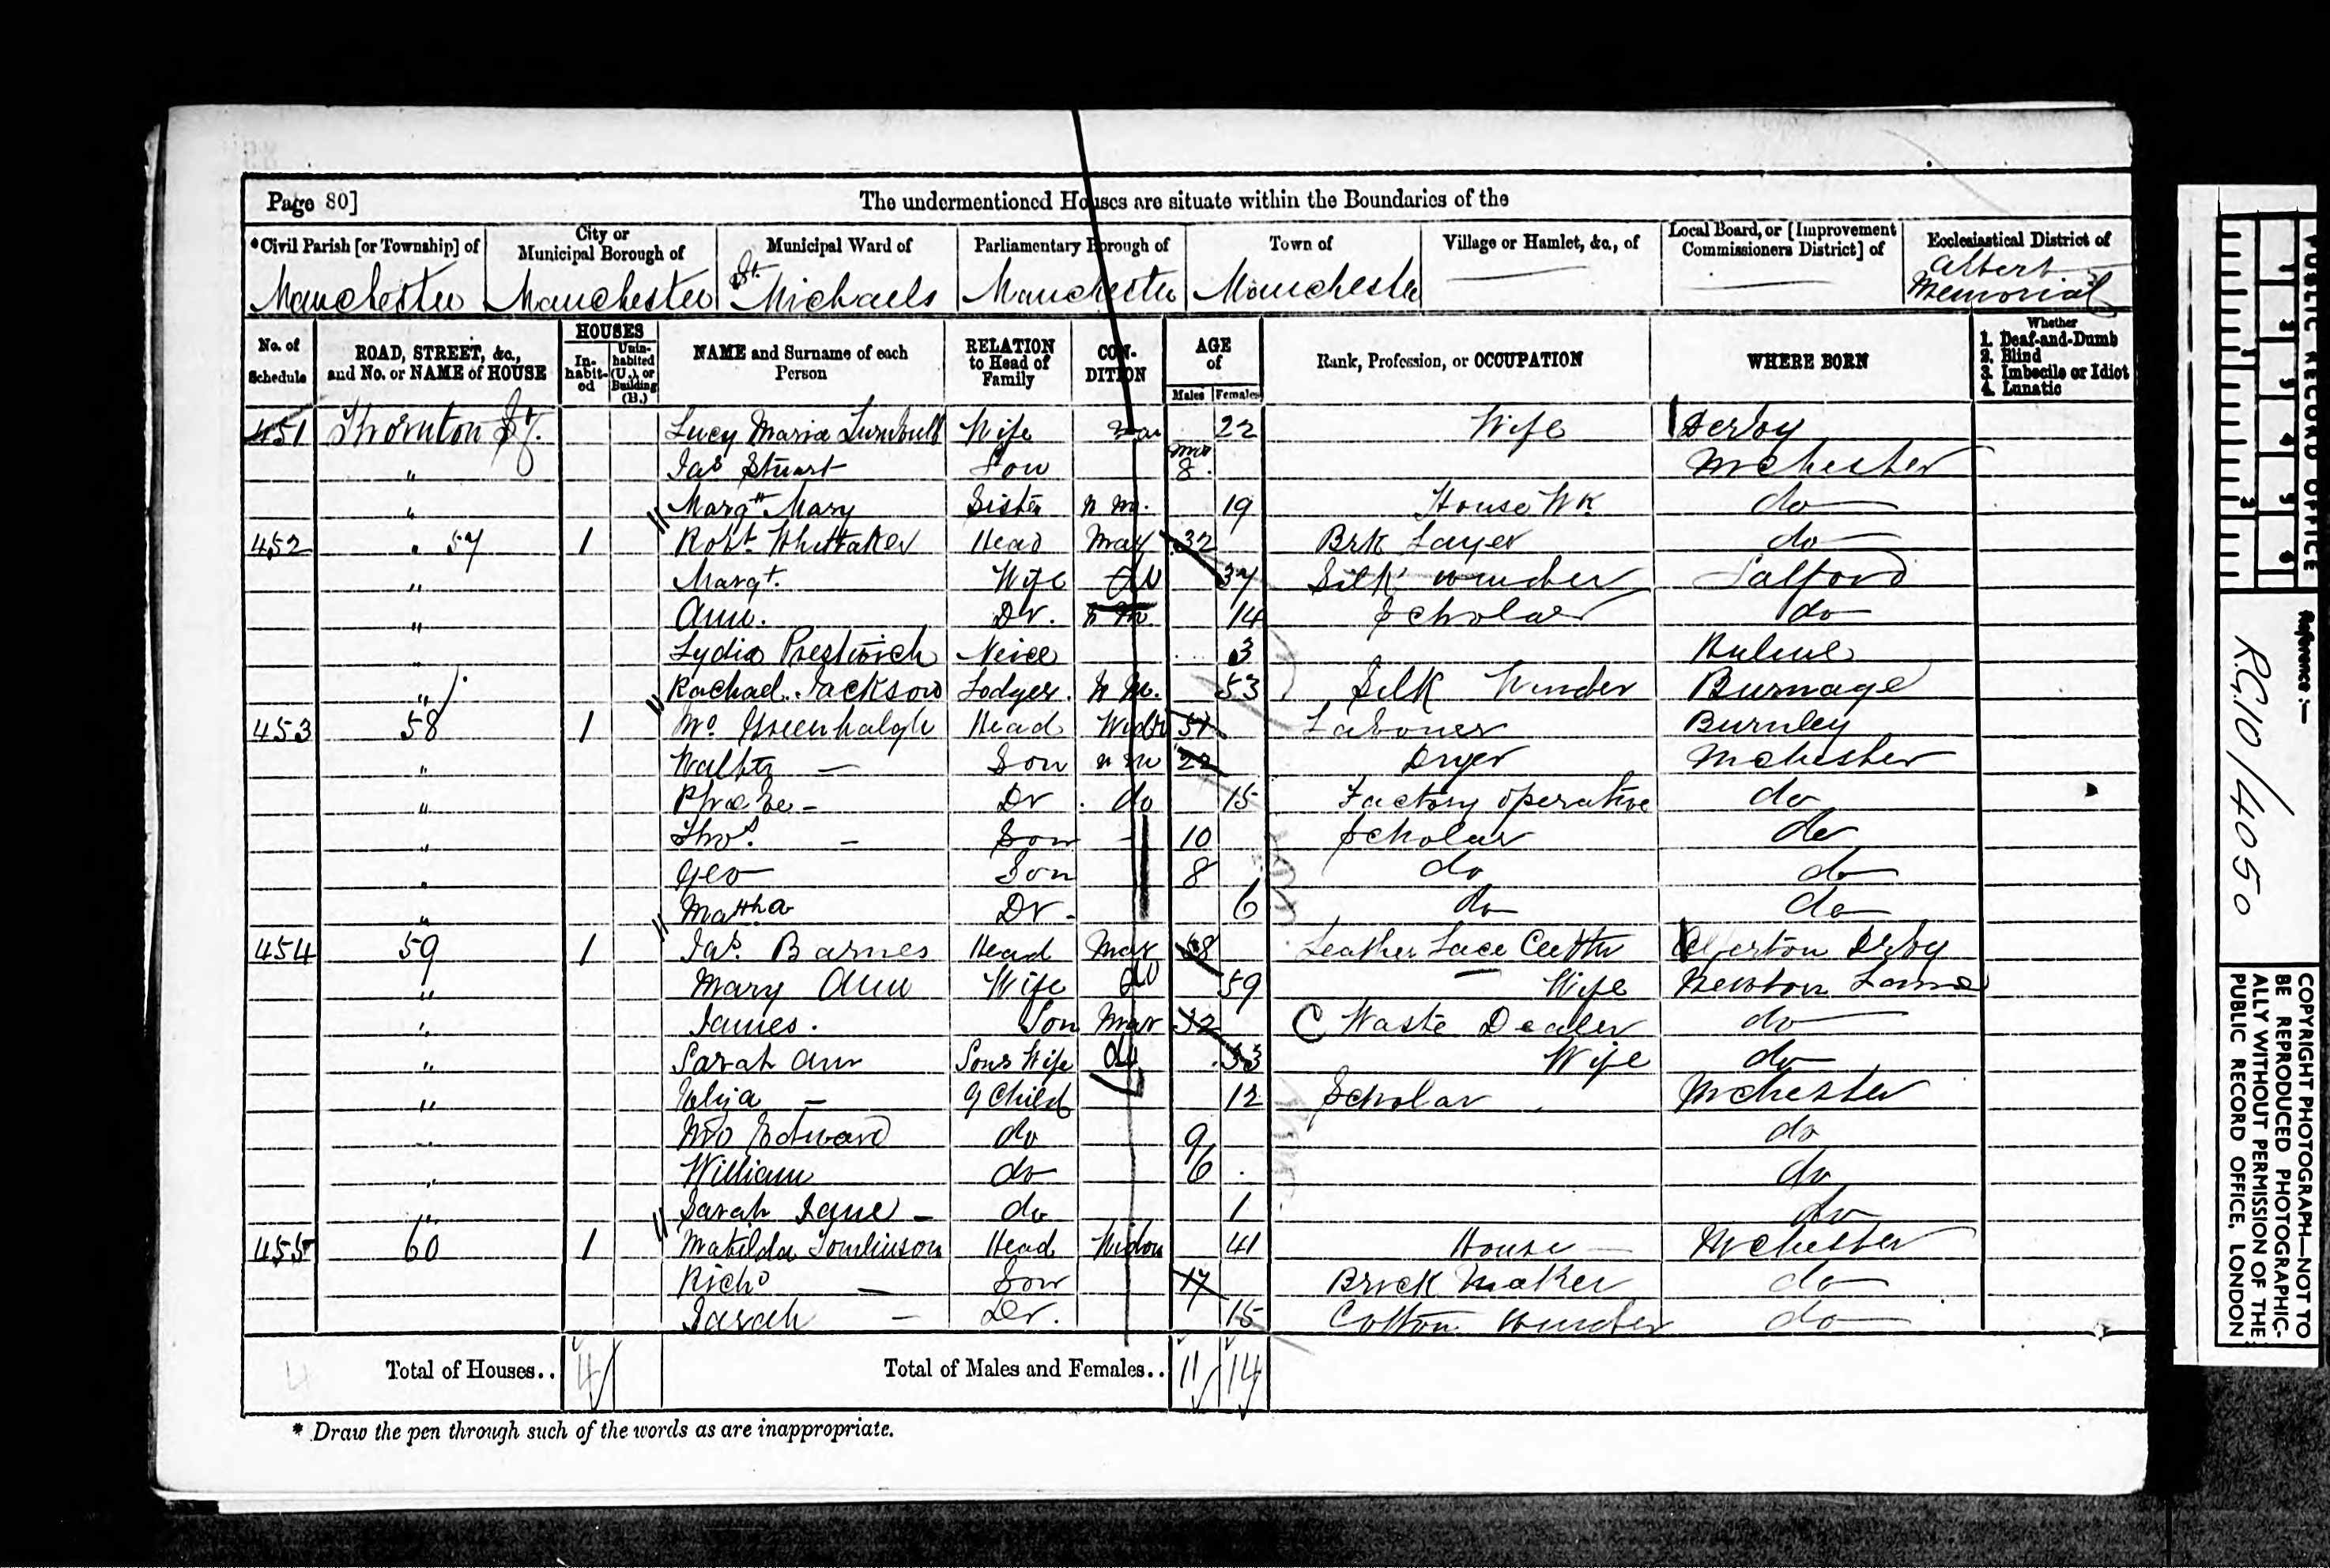 Page 80]
The undermentioned Houses are situate within the Boundaries of the
*Civil Parish [or Township] of
City or Municipal Borough of
Municipal Ward of
Parliamentary Borough of
Town of
Village or Hamlet, &c., of
Local Board, or [Improvement Commissioners District] of
Ecclesiastical District of
Manchester Manchester St. Michaels Manchester Manchester Albert Memorial
No. of Schedule
ROAD, STREET, &c., and No. or NAME of HOUSE
HOUSES
In-habit-ed
Unin-habited (U.), or Building (B.)
NAME and Surname of each Person
RELATION to Head of Family
CON-DITION
AGE of
Males Females
Rank, Profession, or OCCUPATION
WHERE BORN
Whether
1. Deaf-and-Dumb
2. Blind
3. Imbecile or Idiot
4. Lunatic
451 Thornton St. Lucy Maria Turnbull Wife Mar 22 Wife Derby
" Jas Stuart Son mo 8 Mchester
" Margt Mary Sister n m. 19 House Wk do
452 " 57 1 Robt. Whittaker Head Mar 32 Brk Layer do
" Margt. Wife do 37 Silk winder Salford
" Ann. Dr. n m. 14 Scholar do
" Lydia Prestwich Neice 3 Hulme
" Rachael Jackson Lodger. N M. 53 Silk Winder Burnage
453 58 1 Wm Greenhalgh Head Widr 51 Laborer Burnley
" Walter — Son n m 22 Dryer Mchester
" Phoebe - Dr do 15 Factory operative do
" Thos. — Son 10 Scholar do
" Geo Son 8 do do
" Martha Dr - 6 do do
454 59 1 Jas. Barnes Head Mar 58 Leather Lace Cutter Alferton Derby
" Mary Ann Wife do 59 Wife Newton Lanc
" James. Son Mar 32 C Waste Dealer do
" Sarah Ann Sons Wife do 33 Wife do
" Eliza — G Child 12 Scholar Mchester
" Jno Edward do 9 do
" William do 6 do
" Sarah Jane - do 1 do
455 60 1 Matilda Tomlinson Head Widow 41 House — Mchester
Richd — Son 17 Brick Maker do
Sarah — Dr. 15 Cotton winder do
4 Total of Houses.. 4 Total of Males and Females.. 11 14
* Draw the pen through such of the words as are inappropriate.
PUBLIC RECORD OFFICE
1 2 3 4 5 6
Reference :—
R.G. 10/4050
COPYRIGHT PHOTOGRAPH—NOT TO
BE REPRODUCED PHOTOGRAPHIC-
ALLY WITHOUT PERMISSION OF THE
PUBLIC RECORD OFFICE, LONDON